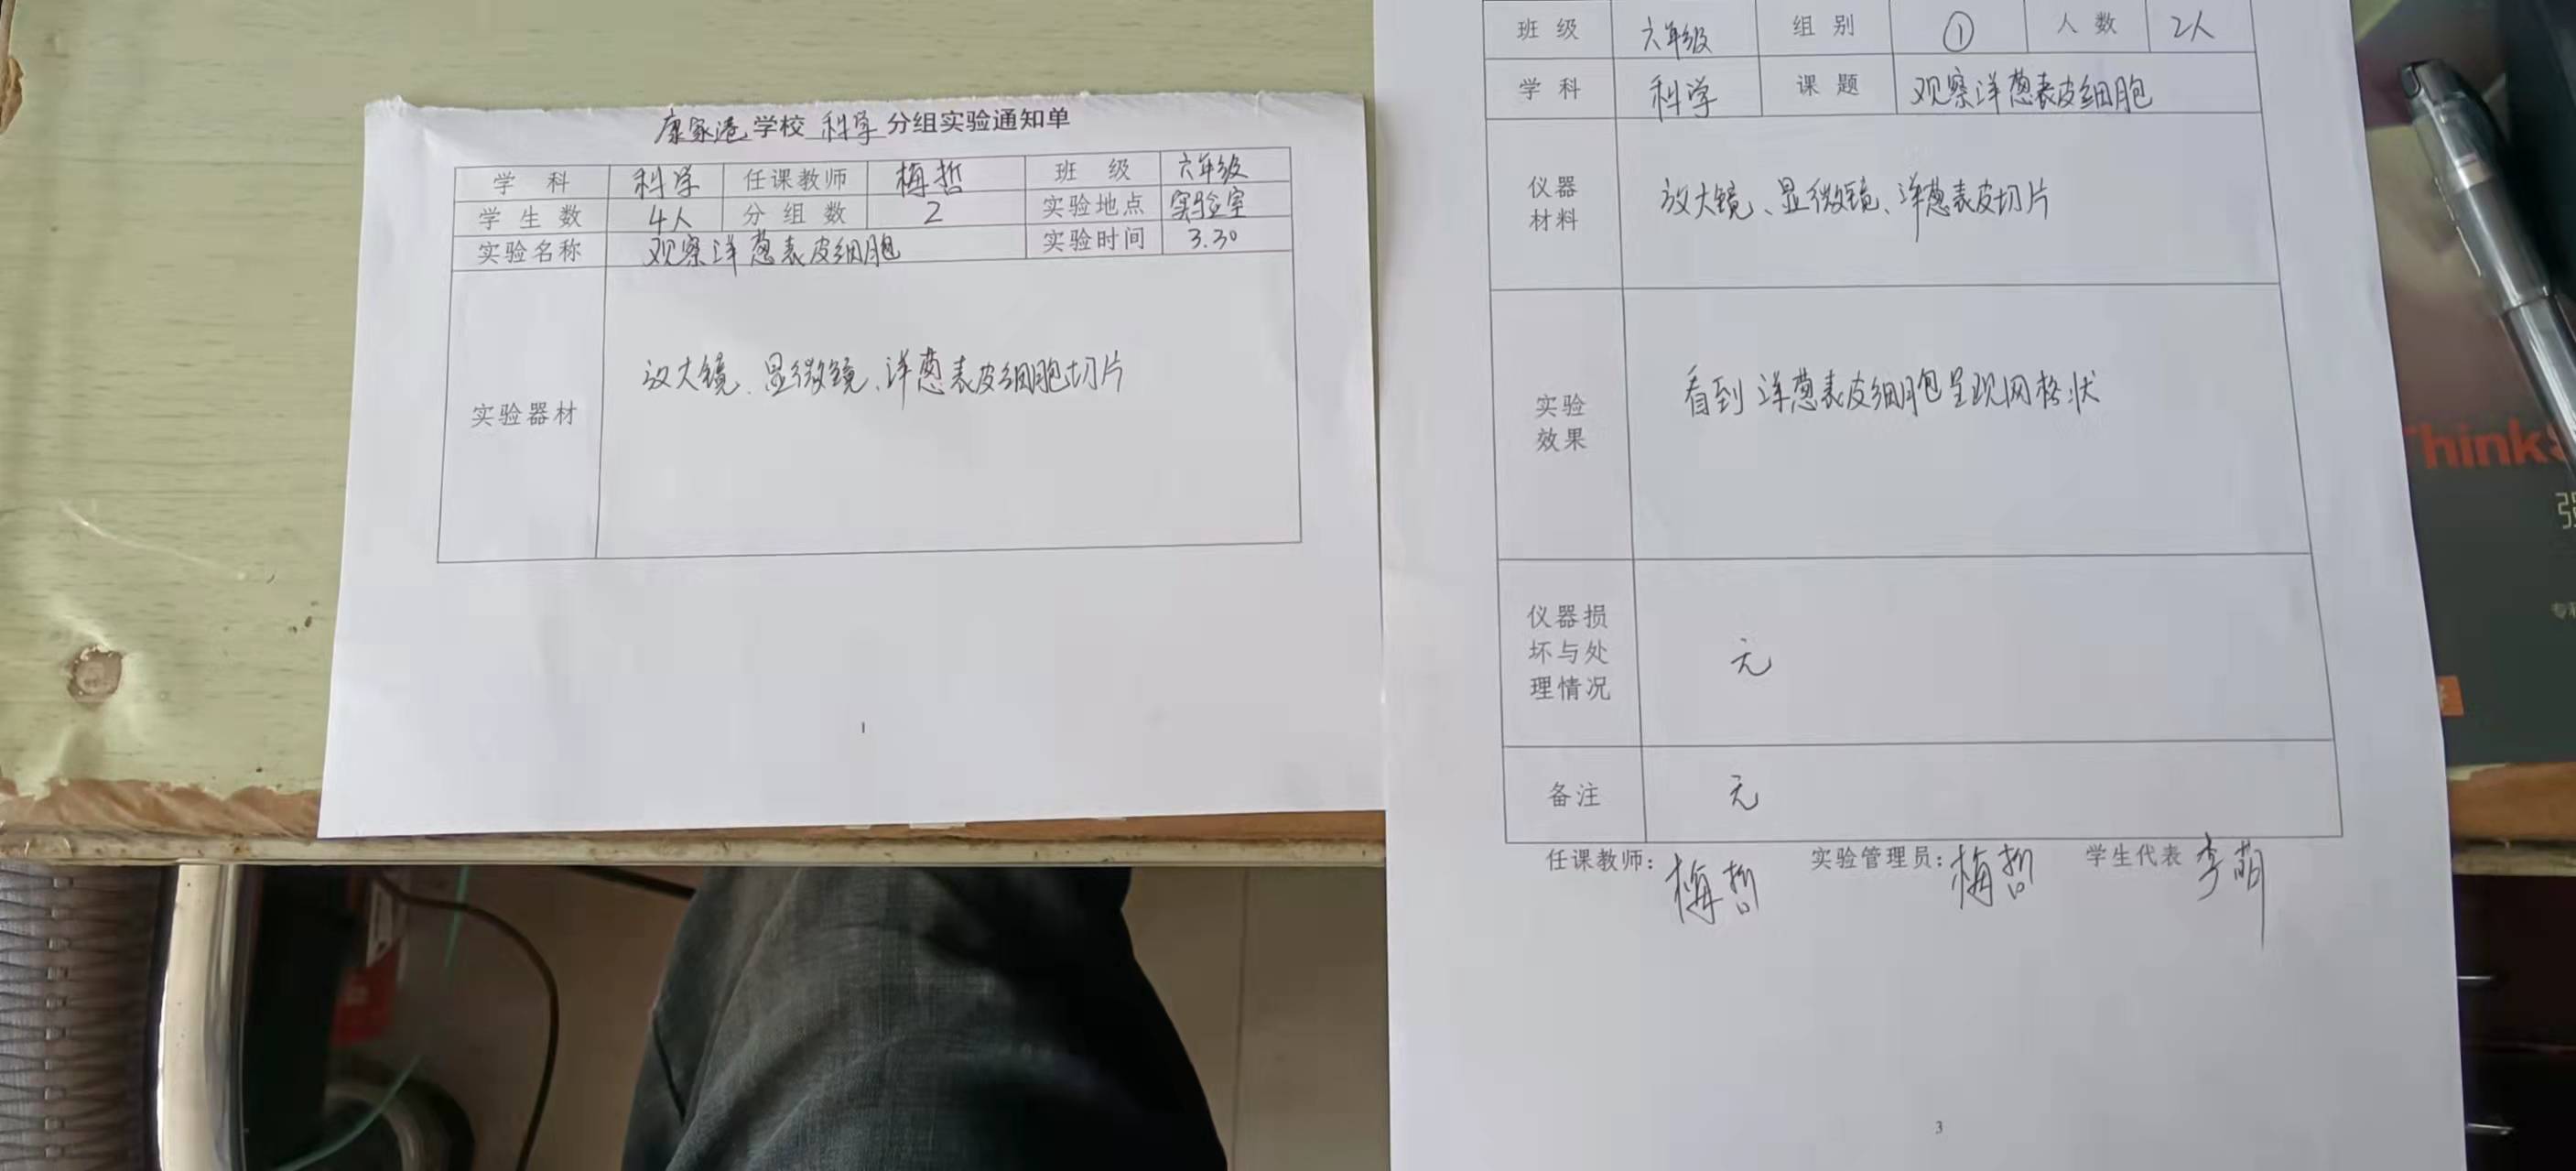 康家港学校 科学 分组实验通知单
学 科 科学 任课教师 梅哲 班 级 六年级
学 生 数 4人 分 组 数 2 实验地点 实验室
实验名称 观察洋葱表皮细胞 实验时间 3.30
实验器材 放大镜、显微镜、洋葱表皮细胞切片
1
班 级 六年级 组 别 ① 人 数 2人
学 科 科学 课 题 观察洋葱表皮细胞
仪器
材料
放大镜、显微镜、洋葱表皮切片
实验
效果
看到洋葱表皮细胞呈现网格状
仪器损
坏与处
理情况
无
备注 无
任课教师: 梅哲 实验管理员: 梅哲 学生代表 李萌
3
Think
强